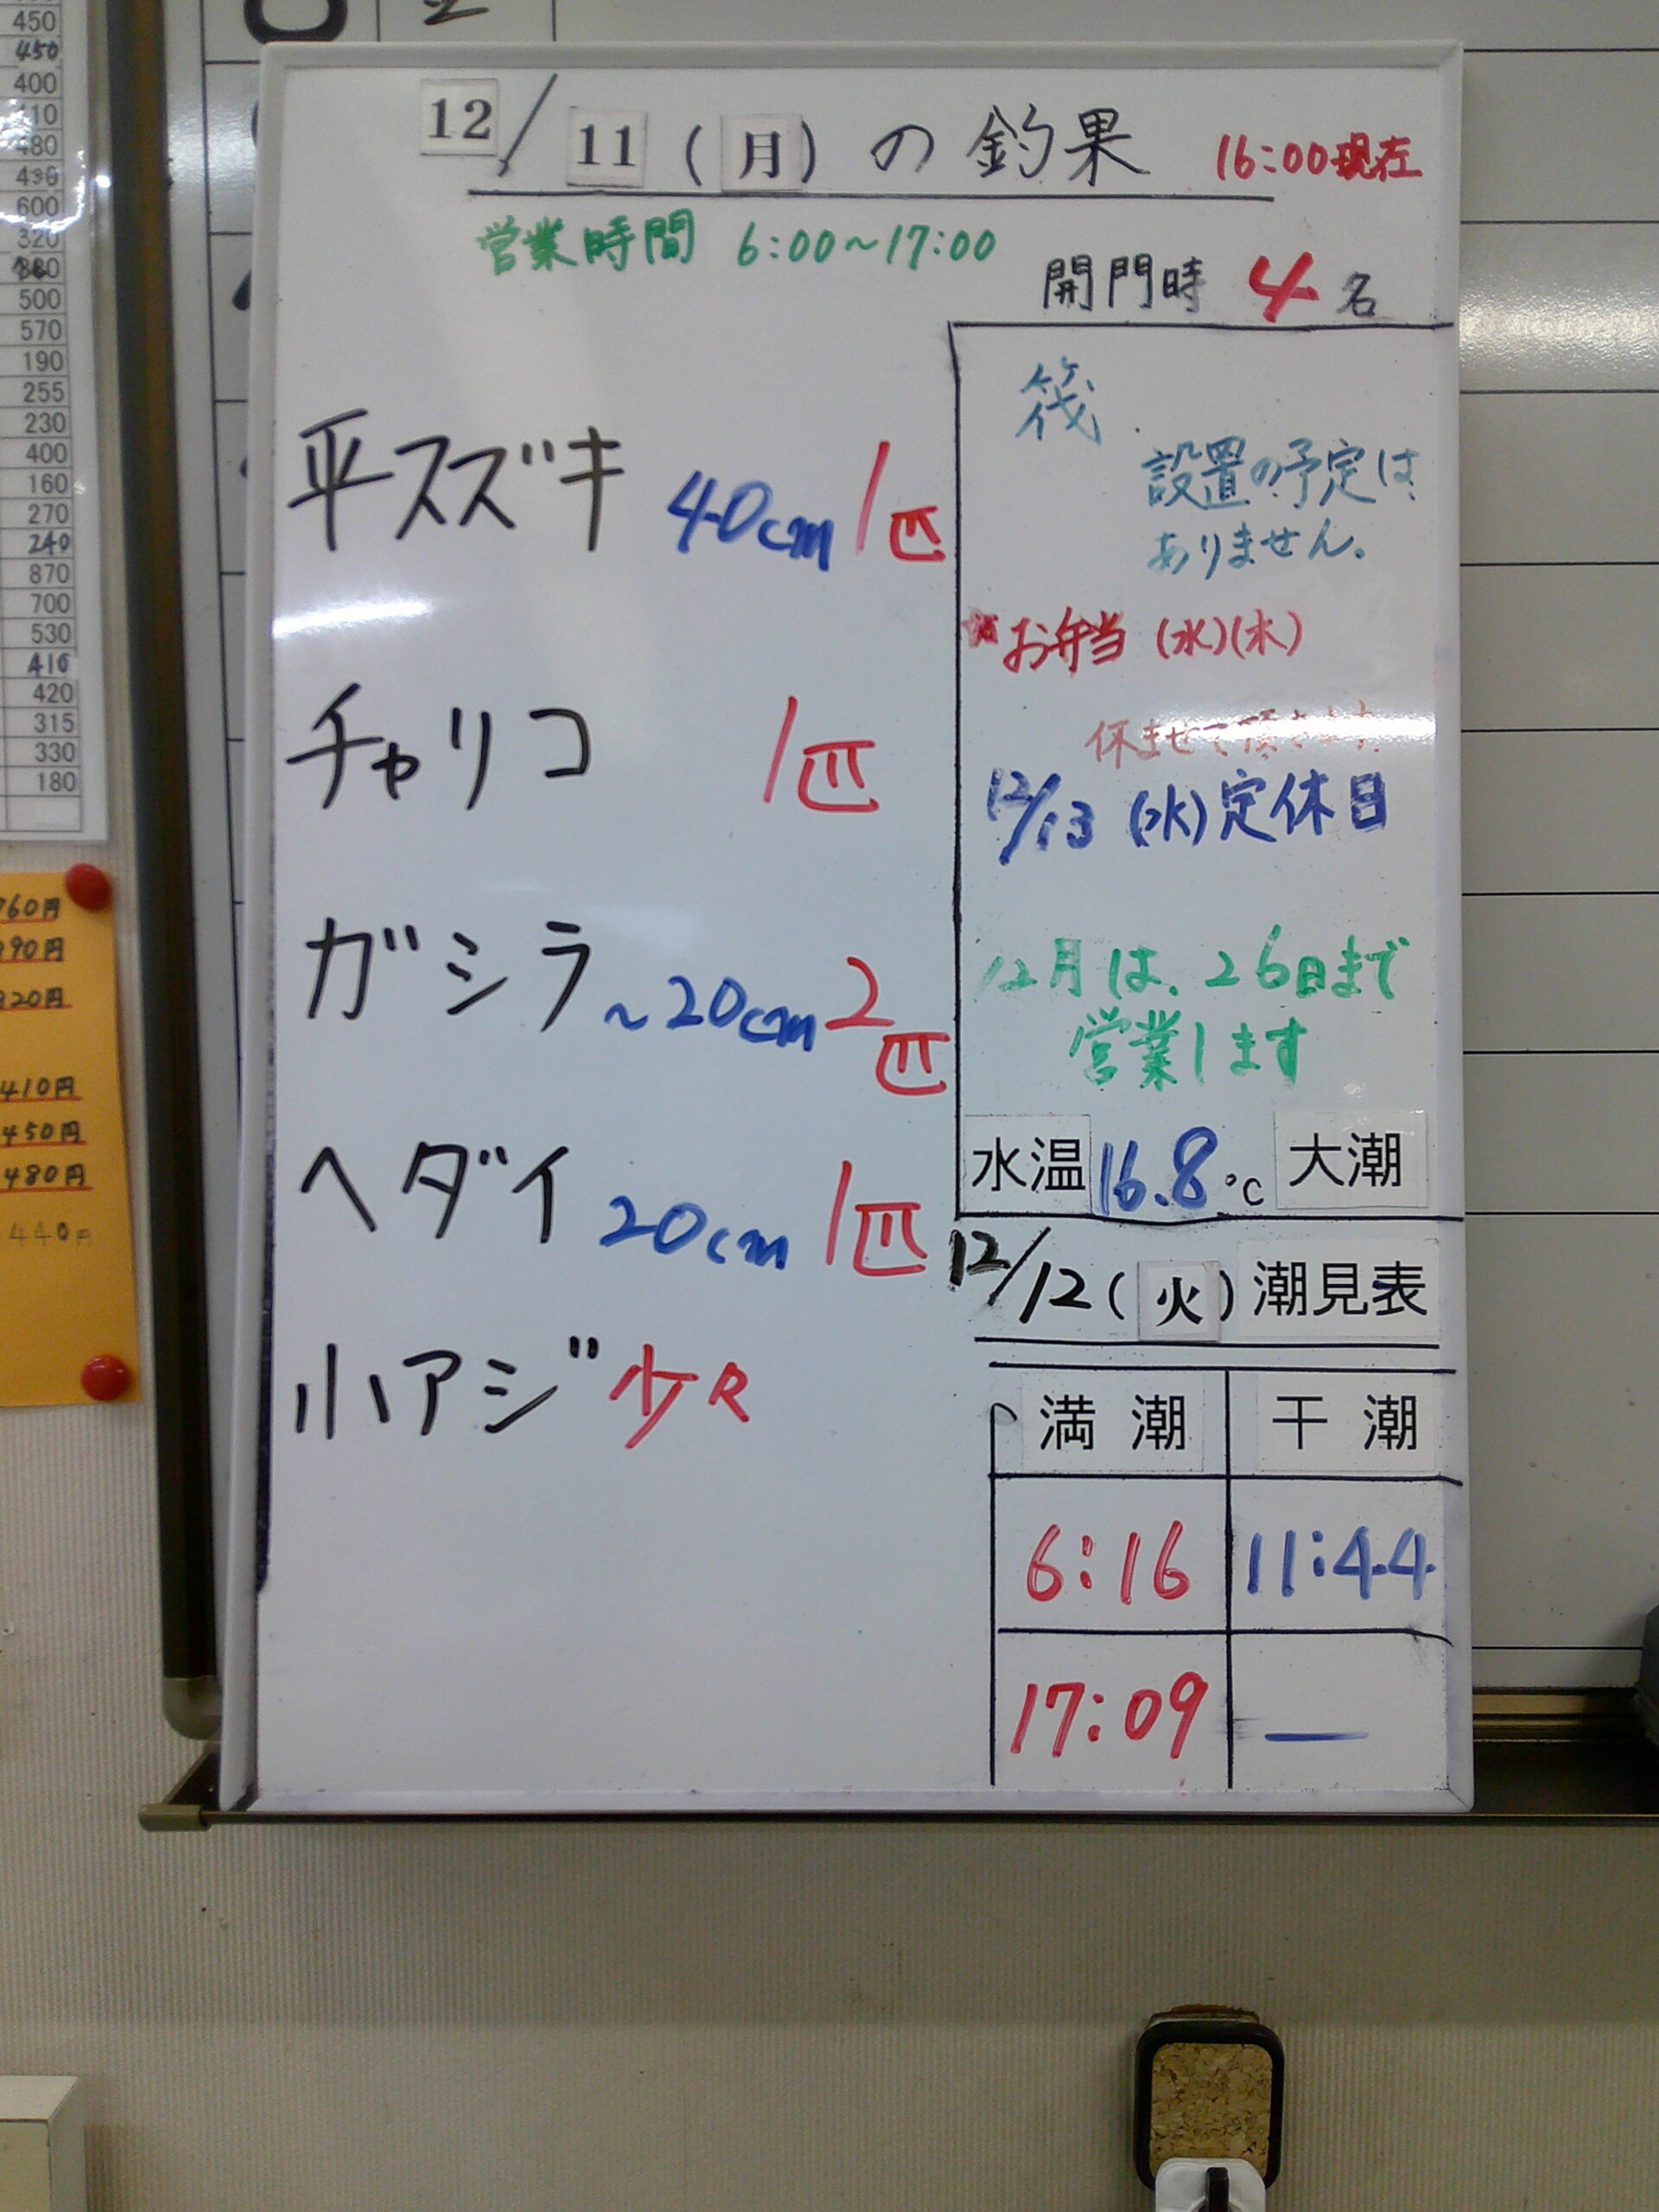 12/11(月)の釣果 16:00現在
営業時間 6:00~17:00
開門時 4名
平スズキ 40cm 1匹
チャリコ 1匹
ガシラ ~20cm 2匹
ヘダイ 20cm 1匹
小アジ 少々
筏
設置の予定は
ありません。
お弁当 (水)(木)
休ませて頂きます
12/13 (水)定休日
12月は、26日まで
営業します
水温 16.8℃ 大潮
12/12(火)潮見表
満潮 干潮
6:16 11:44
17:09 —
450
450
400
480
600
320
500
570
190
255
230
400
160
270
240
870
700
530
416
420
315
330
180
760円
410円
450円
480円
440円